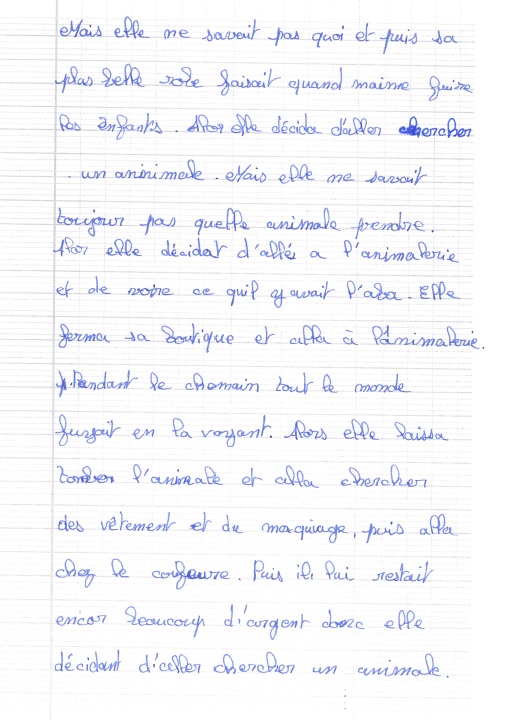 Mais elle ne savait pas quoi et puis sa
plus belle robe faisait quand maime fuire
les enfants. Alor elle décida d'aller chercher
un aninimale. Mais elle ne savait
toujour pas quelle animale prendre.
Alor elle décidat d'allés a l'animalerie
et de voire ce quil y avait l'aba. Elle
ferma sa boutique et alla à l'animalerie.
Pendant le chemain tout le monde
fuyait en la voyant. Alors elle laissa
tomber l'animale et alla chercher
des vêtement et du maquiage, puis alla
chez le coifeure. Puis il lui restait
encor beaucoup d'argent donc elle
décidant d'aller chercher un animale.